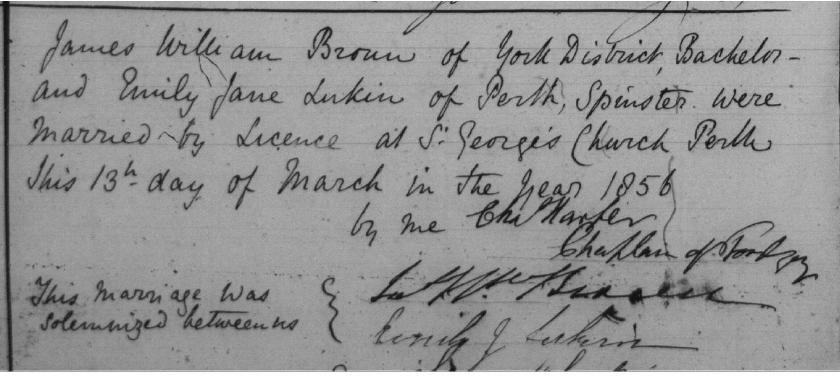 James William Brown of York District, Bachelor -
and Emily Jane Lukin of Perth, Spinster were
Married by Licence at St George's Church Perth
This 13th day of March in the Year 1856
by me Chas Harper
Chaplain of Toodyay
This Marriage was
solemnized between us
Jas Wm Brown
Emily J Lukin